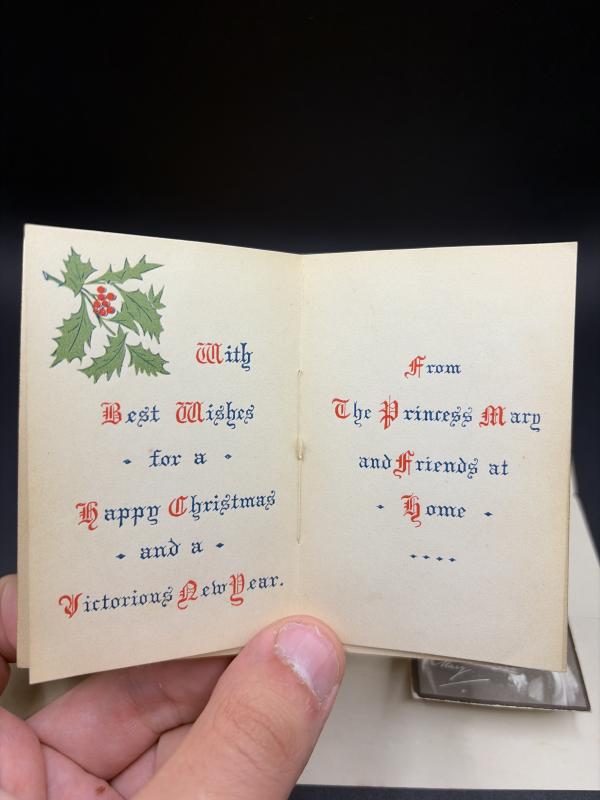 With
Best Wishes
for a
Happy Christmas
and a
Victorious New Year.
From
The Princess Mary
and Friends at
Home
Mary